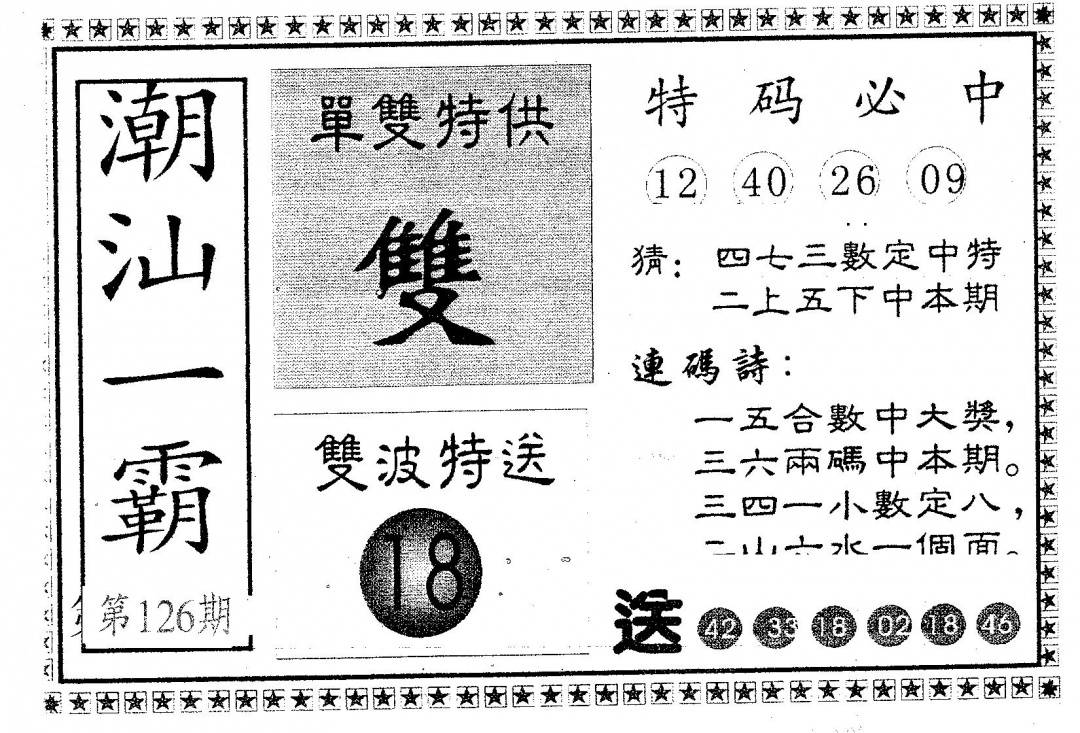 潮汕一霸
第126期
單雙特供
雙
雙波特送
18
特码必中
12 40 26 09
猜：四七三數定中特
二上五下中本期
連碼詩：
一五合數中大獎，
三六兩碼中本期。
三四一小數定八，
二山六水一個面。
送 42 33 18 02 18 46